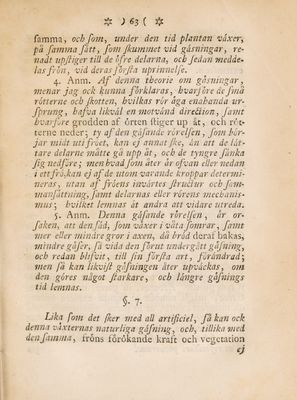 ☼ ) 63 ( ☼
samma, och som, under den tid plantan växer,
på samma sätt, som skummet vid gäsningar, re-
nadt upstiger till de öfre delarna, och sedan medde-
las frön, vid deras första uprinnelse.
4. Anm. Af denna theorie om gäsningar,
menar jag ock kunna förklaras, hvarföre de små
rötterne och skotten, hvilkas rör äga enahanda ur-
sprung, hafva likväl en motvänd direction, samt
hvarföre grodden af ören stiger up åt, och röt-
terne neder; ty af den gäsande rörelsen, som bör-
jar midt uti fröet, kan ej annat ske, än att de lät-
tare delarne måtte gå upp åt, och de tyngre sänka
sig nedföre; men hvad som åter är ofvan eller nedan
i ett frö, kan ej af de utom varande kroppar determi-
neras, utan af fröets invärtes structur och sam-
mansättning, samt delarnas eller rörens mechanis-
mus; hvilket lemnas åt andra att vidare utreda.
5. Anm. Denna gäsande rörelsen, är or-
saken, att den säd, som växer i våta somrar, samt
mer eller mindre gror i axen, då bröd deraf bakas,
mindre gäser, så vida den förut undergått gäsning,
och redan blifvit, till sin första art, förändrad;
men så kan likvist gäsningen åter upväckas, om
den göres något starkare, och längre gäsnings
tid lemnas.
§. 7.
Lika som det sker med all artificiel, så kan ock
denna växternas naturliga gäsning, och, tillika med
den samma, fröns förökande kraft och vegetation
ej